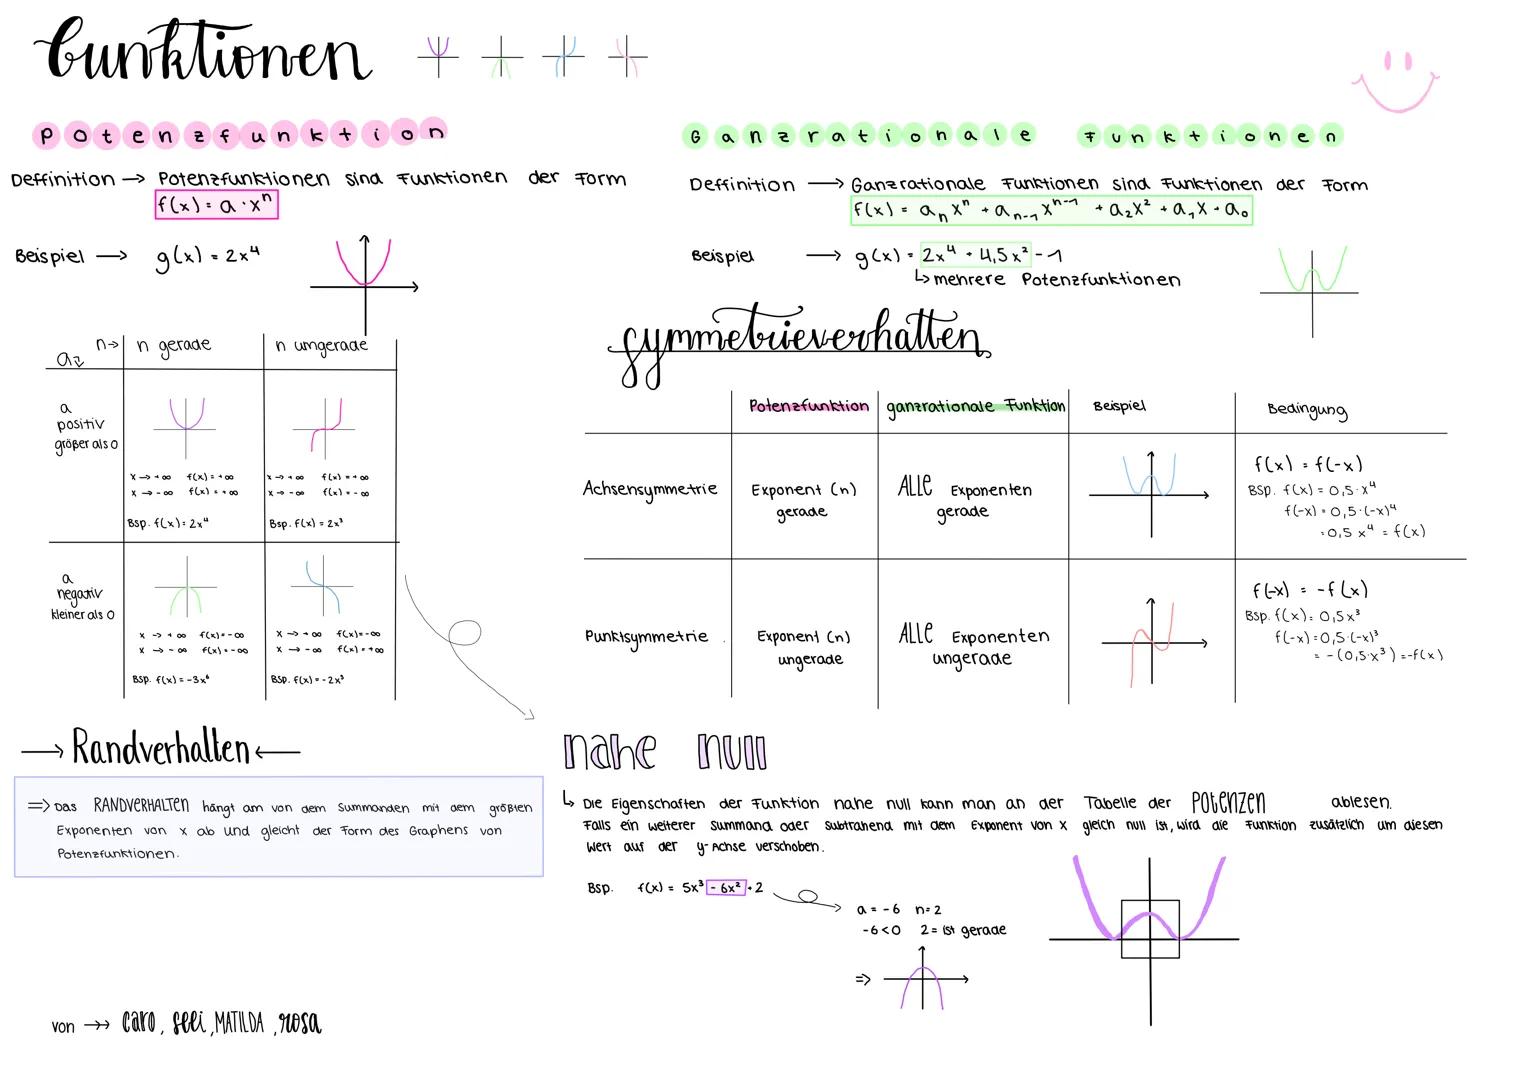 Funktionen
Potenzfunktion
Deffinition → Potenzfunktionen sind Funktionen der Form
f(x) = a · xⁿ
Beispiel → g(x) = 2x⁴
n→ n gerade n umgerade
a
a
positiv
größer als 0
x → +∞ f(x) = +∞
x → -∞ f(x) = +∞
Bsp. f(x) = 2x⁴
x → +∞ f(x) = +∞
x → -∞ f(x) = -∞
Bsp. f(x) = 2x³
a
negativ
kleiner als 0
x → +∞ f(x) = -∞
x → -∞ f(x) = -∞
Bsp. f(x) = -3x⁶
x → +∞ f(x) = -∞
x → -∞ f(x) = +∞
Bsp. f(x) = -2x³
→ Randverhalten ←
⇒ Das RANDVERHALTEN hängt am von dem Summanden mit dem größten
Exponenten von x ab und gleicht der Form des Graphens von
Potenzfunktionen.
von →→ caro, feli, MATILDA, rosa
Ganzrationale Funktionen
Deffinition → Ganzrationale Funktionen sind Funktionen der Form
f(x) = aₙxⁿ + aₙ₋₁xⁿ⁻¹ + a₂x² + a₁x + a₀
Beispiel → g(x) = 2x⁴ + 4,5x² - 1
↳ mehrere Potenzfunktionen
Symmetrieverhalten
Potenzfunktion ganzrationale Funktion Beispiel Bedingung
Achsensymmetrie
Exponent (n)
gerade
ALLE Exponenten
gerade
f(x) = f(-x)
Bsp. f(x) = 0,5·x⁴
f(-x) = 0,5·(-x)⁴
= 0,5 x⁴ = f(x)
Punktsymmetrie
Exponent (n)
ungerade
ALLE Exponenten
ungerade
f(-x) = -f(x)
Bsp. f(x) = 0,5x³
f(-x) = 0,5·(-x)³
= -(0,5·x³) = -f(x)
nahe null
↳ Die Eigenschaften der Funktion nahe null kann man an der Tabelle der POTENZEN ablesen.
Falls ein weiterer Summand oder Subtrahend mit dem Exponent von x gleich null ist, wird die Funktion zusätzlich um diesen
Wert auf der y-Achse verschoben.
Bsp. f(x) = 5x³ - 6x² + 2
a = -6 n = 2
-6 < 0 2 = ist gerade
⇒